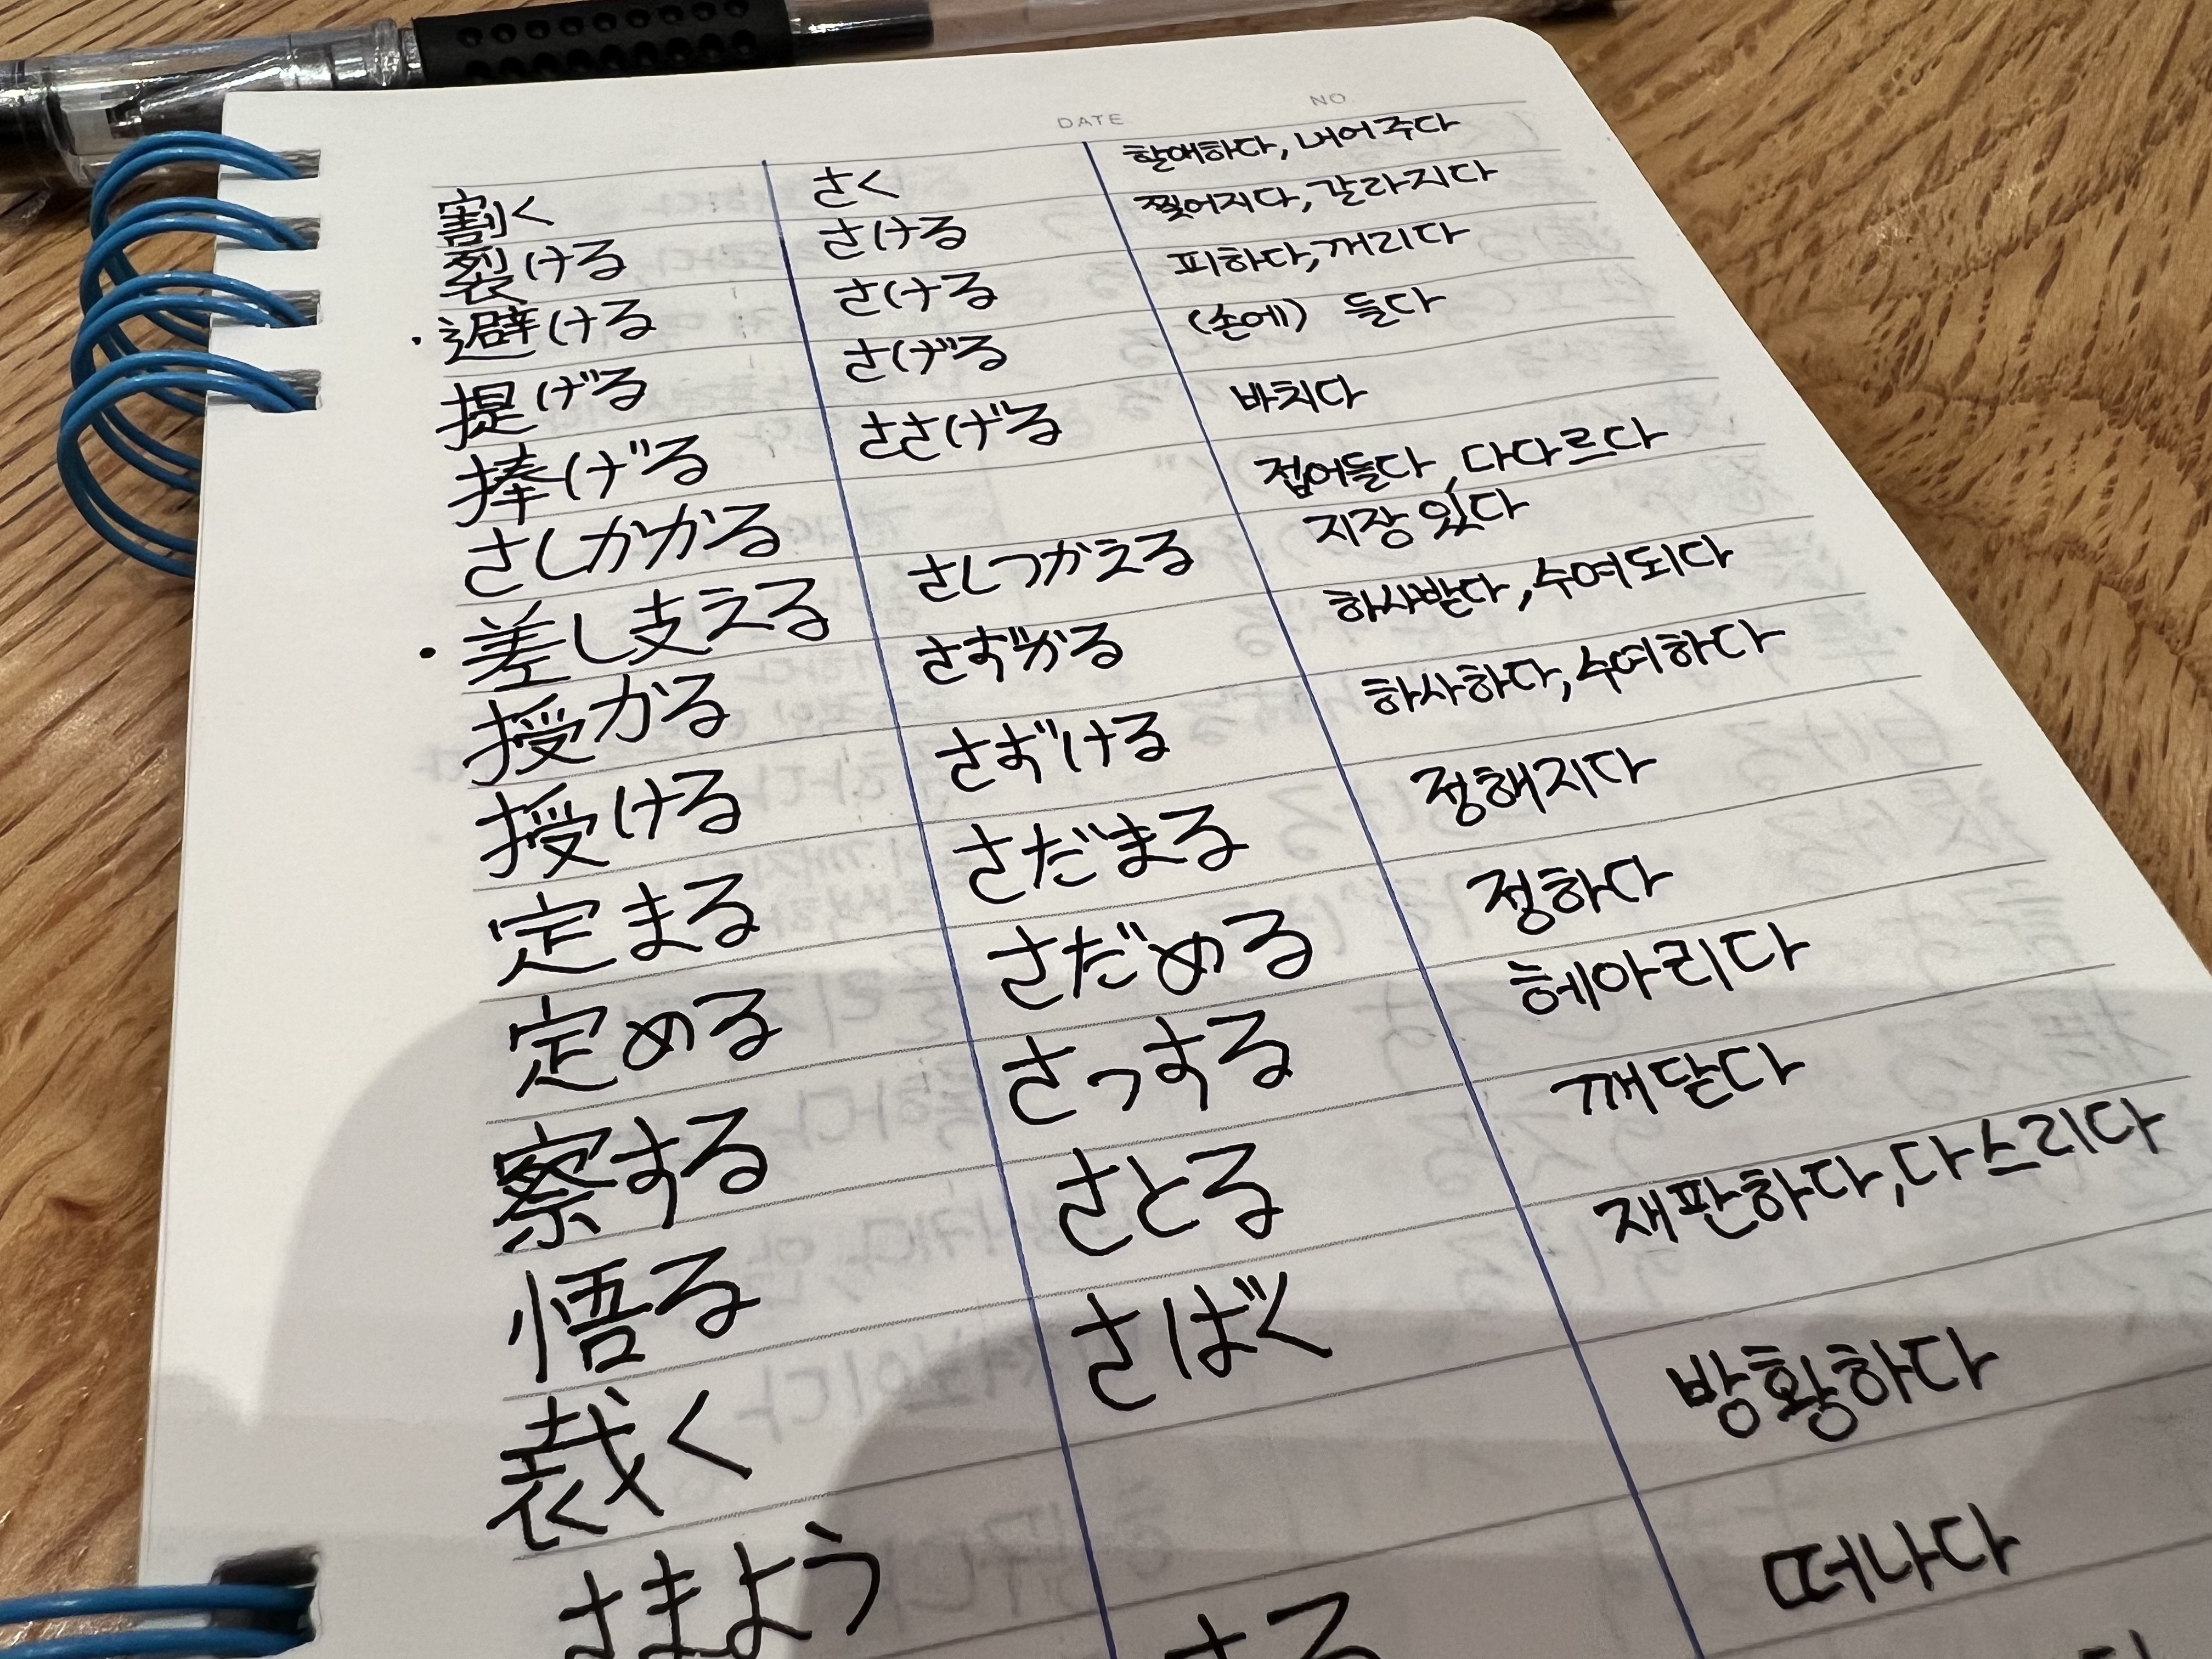 DATE NO
割く さく 할애하다, 내어주다
裂ける さける 찢어지다, 갈라지다
・避ける さける 피하다, 꺼리다
提げる さげる (손에) 들다
捧げる ささげる 바치다
さしかかる 접어들다, 다다르다
・差し支える さしつかえる 지장 있다
授かる さずかる 하사받다, 수여되다
授ける さずける 하사하다, 수여하다
定まる さだまる 정해지다
定める さだめる 정하다
察する さっする 헤아리다
悟る さとる 깨닫다
裁く さばく 재판하다, 다스리다
さまよう 방황하다
さる 떠나다